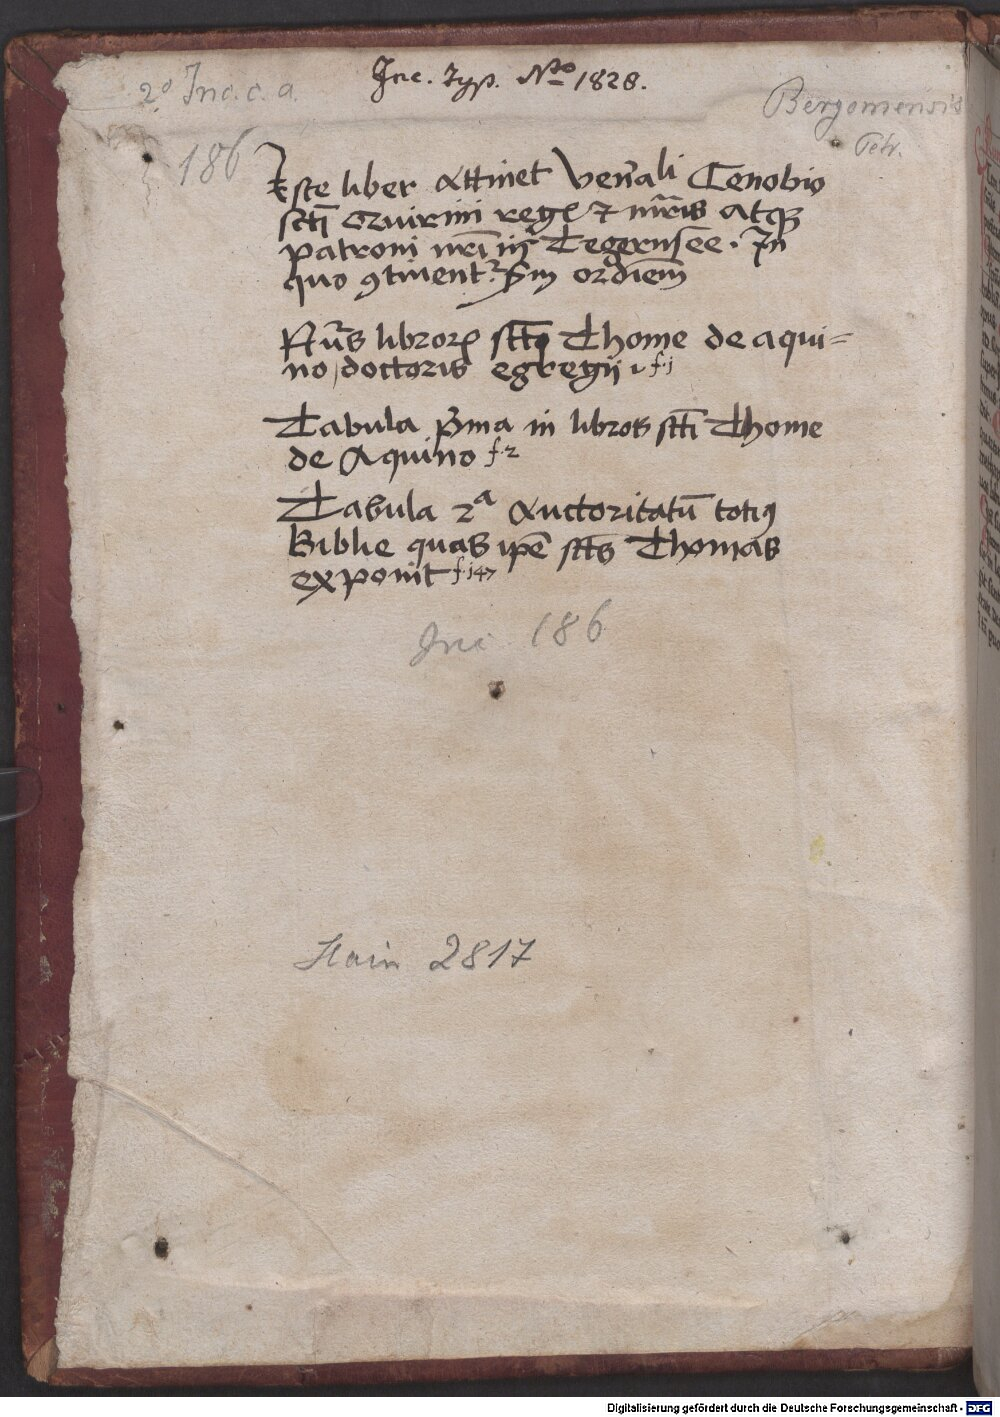 Inc. Typ. No 1828.
2° Inc. c. a.
Bergomensis
Petr.
186
Iste liber attinet Ven̄ali Cenobio
sctī Quirini regꝭ ⁊ mr̄is atqꝫ
patroni nrī in Tegernsee. In
quo ꝯtinent᷑ ẜm ordiem̄
Nūs libroꝝ sctī Thome de aqui=
no doctoris egregij f·j
Tabula p̄ma in libros sctī Thome
de Aquino f·2
Tabula 2ª auctoritatū totiꝰ
Biblie quas ip̄e sctūs Thomas
exponit f·147
Inc. 186
Hain 2817
Digitalisierung gefördert durch die Deutsche Forschungsgemeinschaft - DFG